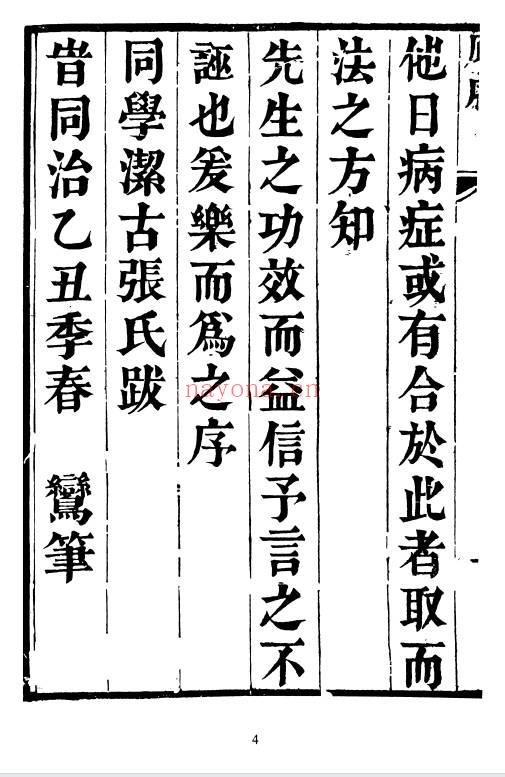 他日病症或有合於此者取而
法之方知
先生之功效而益信予言之不
誣也爰樂而爲之序
同學潔古張氏跋
旹同治乙丑季春 鸞筆
nayona.cn
4